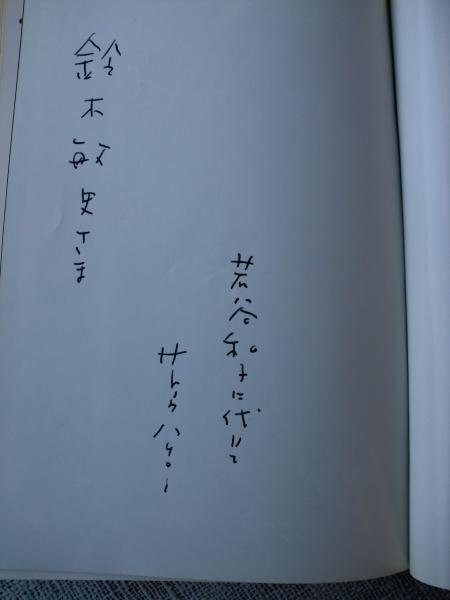 若谷和子に代りて
サトウハチロー
鈴木敏史さま